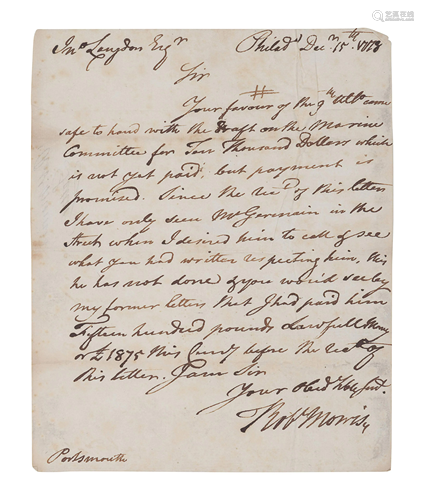 Jn.º Langdon Esq.r Philad.a Dec.r 15th 1778
Sir
Your favour of the 9th Ulto came
safe to hand with the draft on the Marine
Committee for Four Thousand Dollars which
is not yet paid, but payment is
promised. Since the rec.t of this letter
I have only seen Mr Germain in the
Street when I desired him to call & see
what you had written respecting him, this
he has not done & you would see by
my former letters that I had paid him
Fifteen hundred pounds Lawfull Money
or £1875 this Curr.y before the rec.t of
this letter. I am Sir
Your Obed. Hble Servt.
Rob.t Morris
Portsmouth